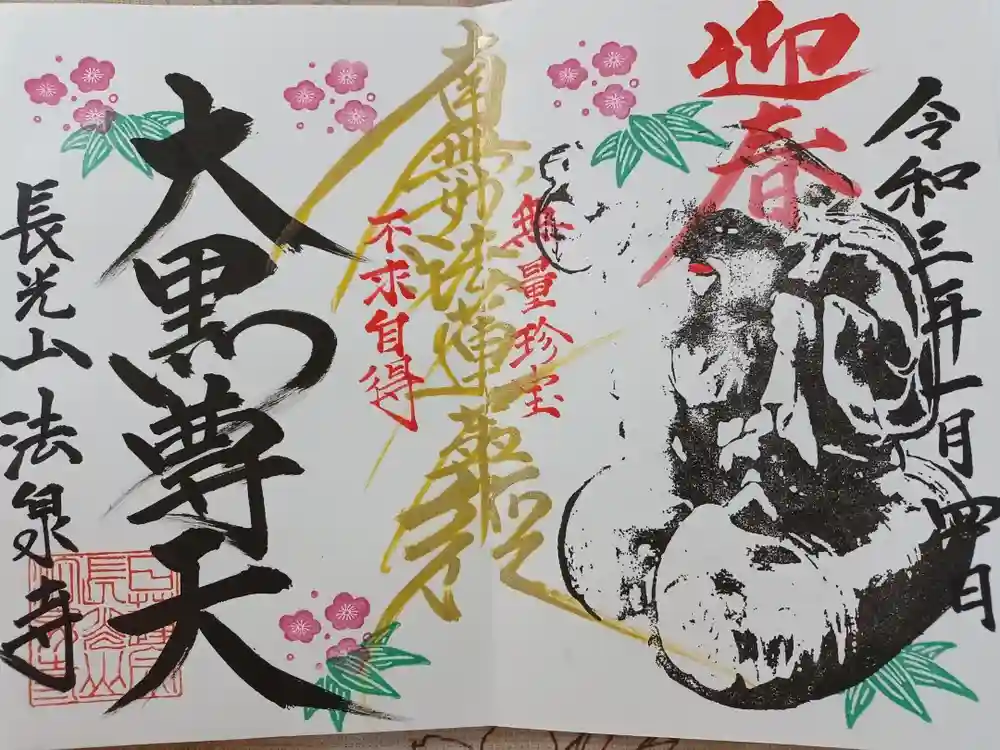 令和三年一月四日
迎春
無量珍宝
南無妙法蓮華経
不求自得
大黒尊天
長光山法泉寺